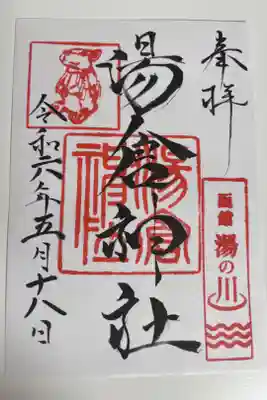 奉拝
湯倉神社
令和六年五月十八日
函館
湯の川